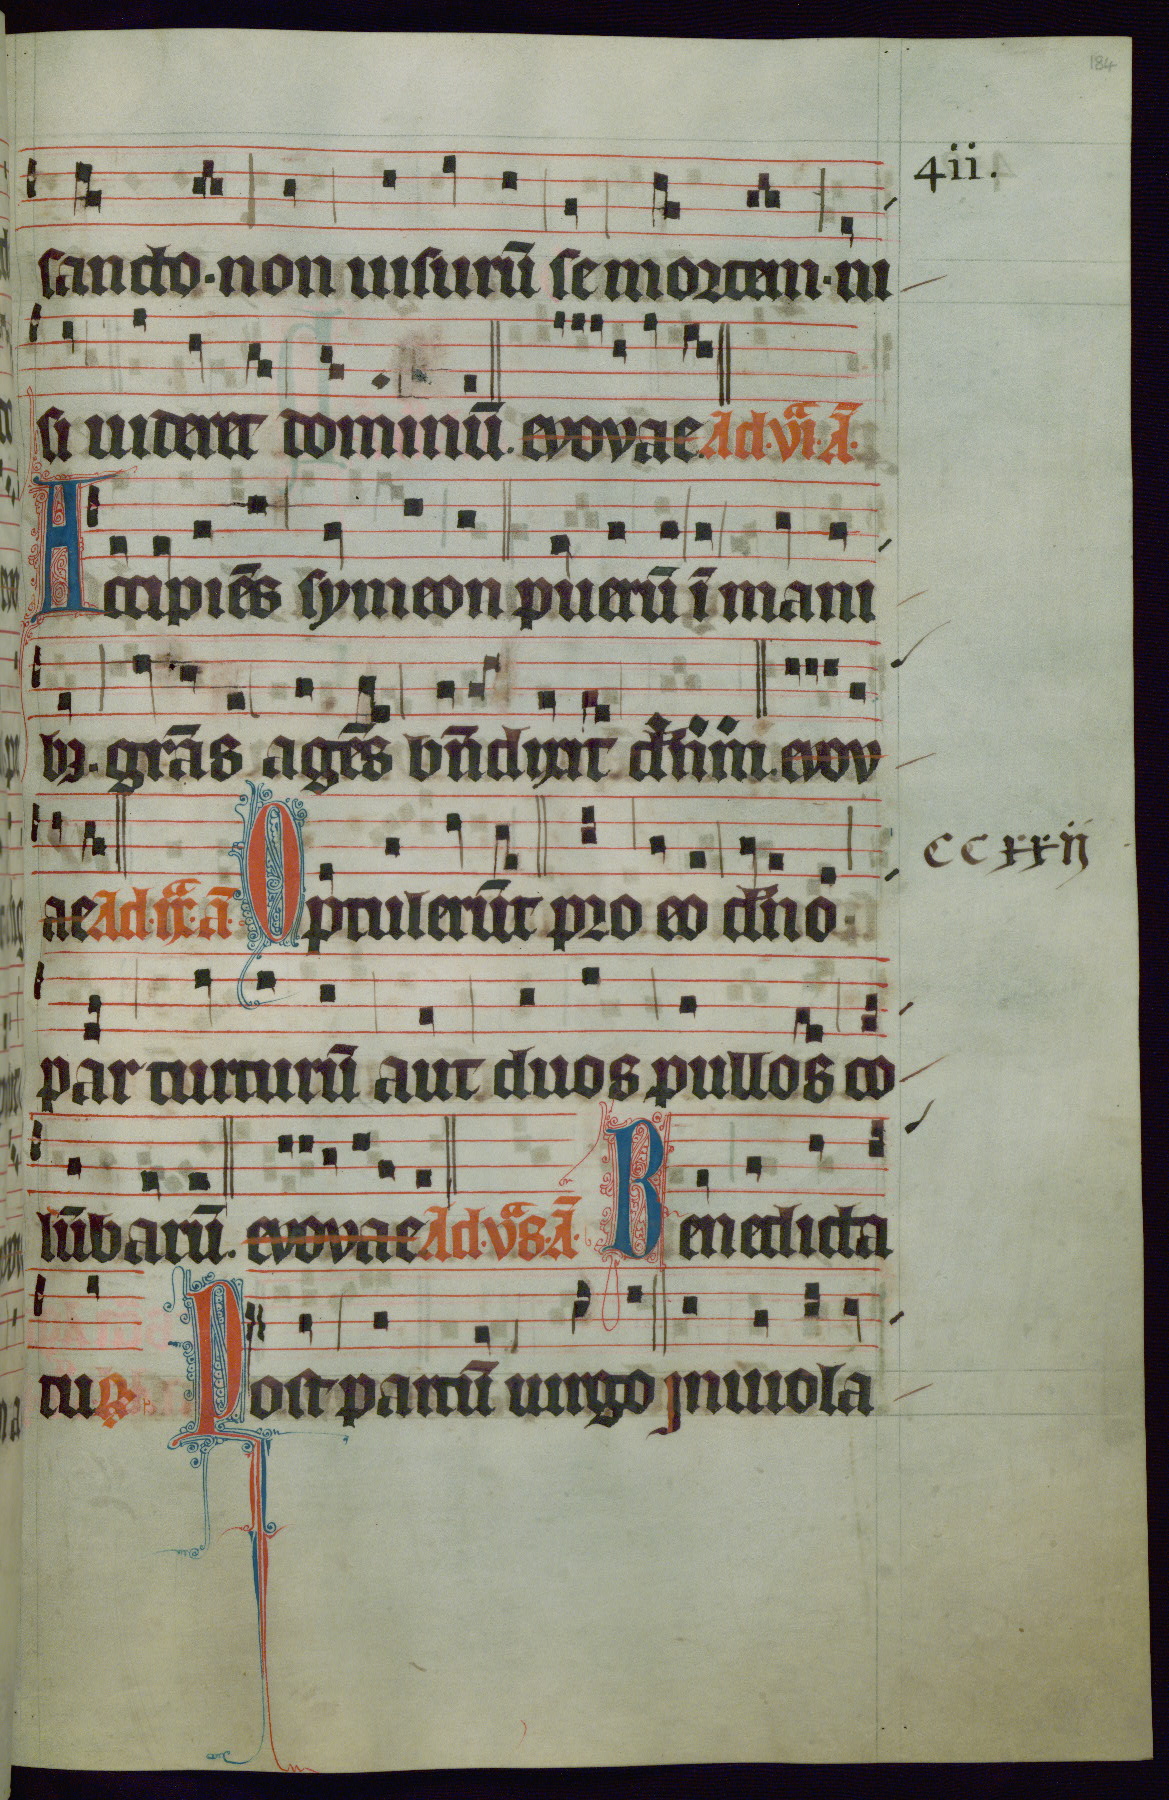 184
4ii.
sancto·non uisurū se mortem·ni
si uideret dominū. evovae Ad·vi·ā·
Accipiēs symeon puerū ī mani
bꝫ· grā̄s agēs bn̄dixit dn̄m. evov
ae Ad·ix·ā· Optulerūt pro eo dn̄o·
ccxxii
par turturū aut duos pullos co
lūbarū. evovae Ad·vs̄·ā· Benedicta
tu Post partū uirgo inuiola